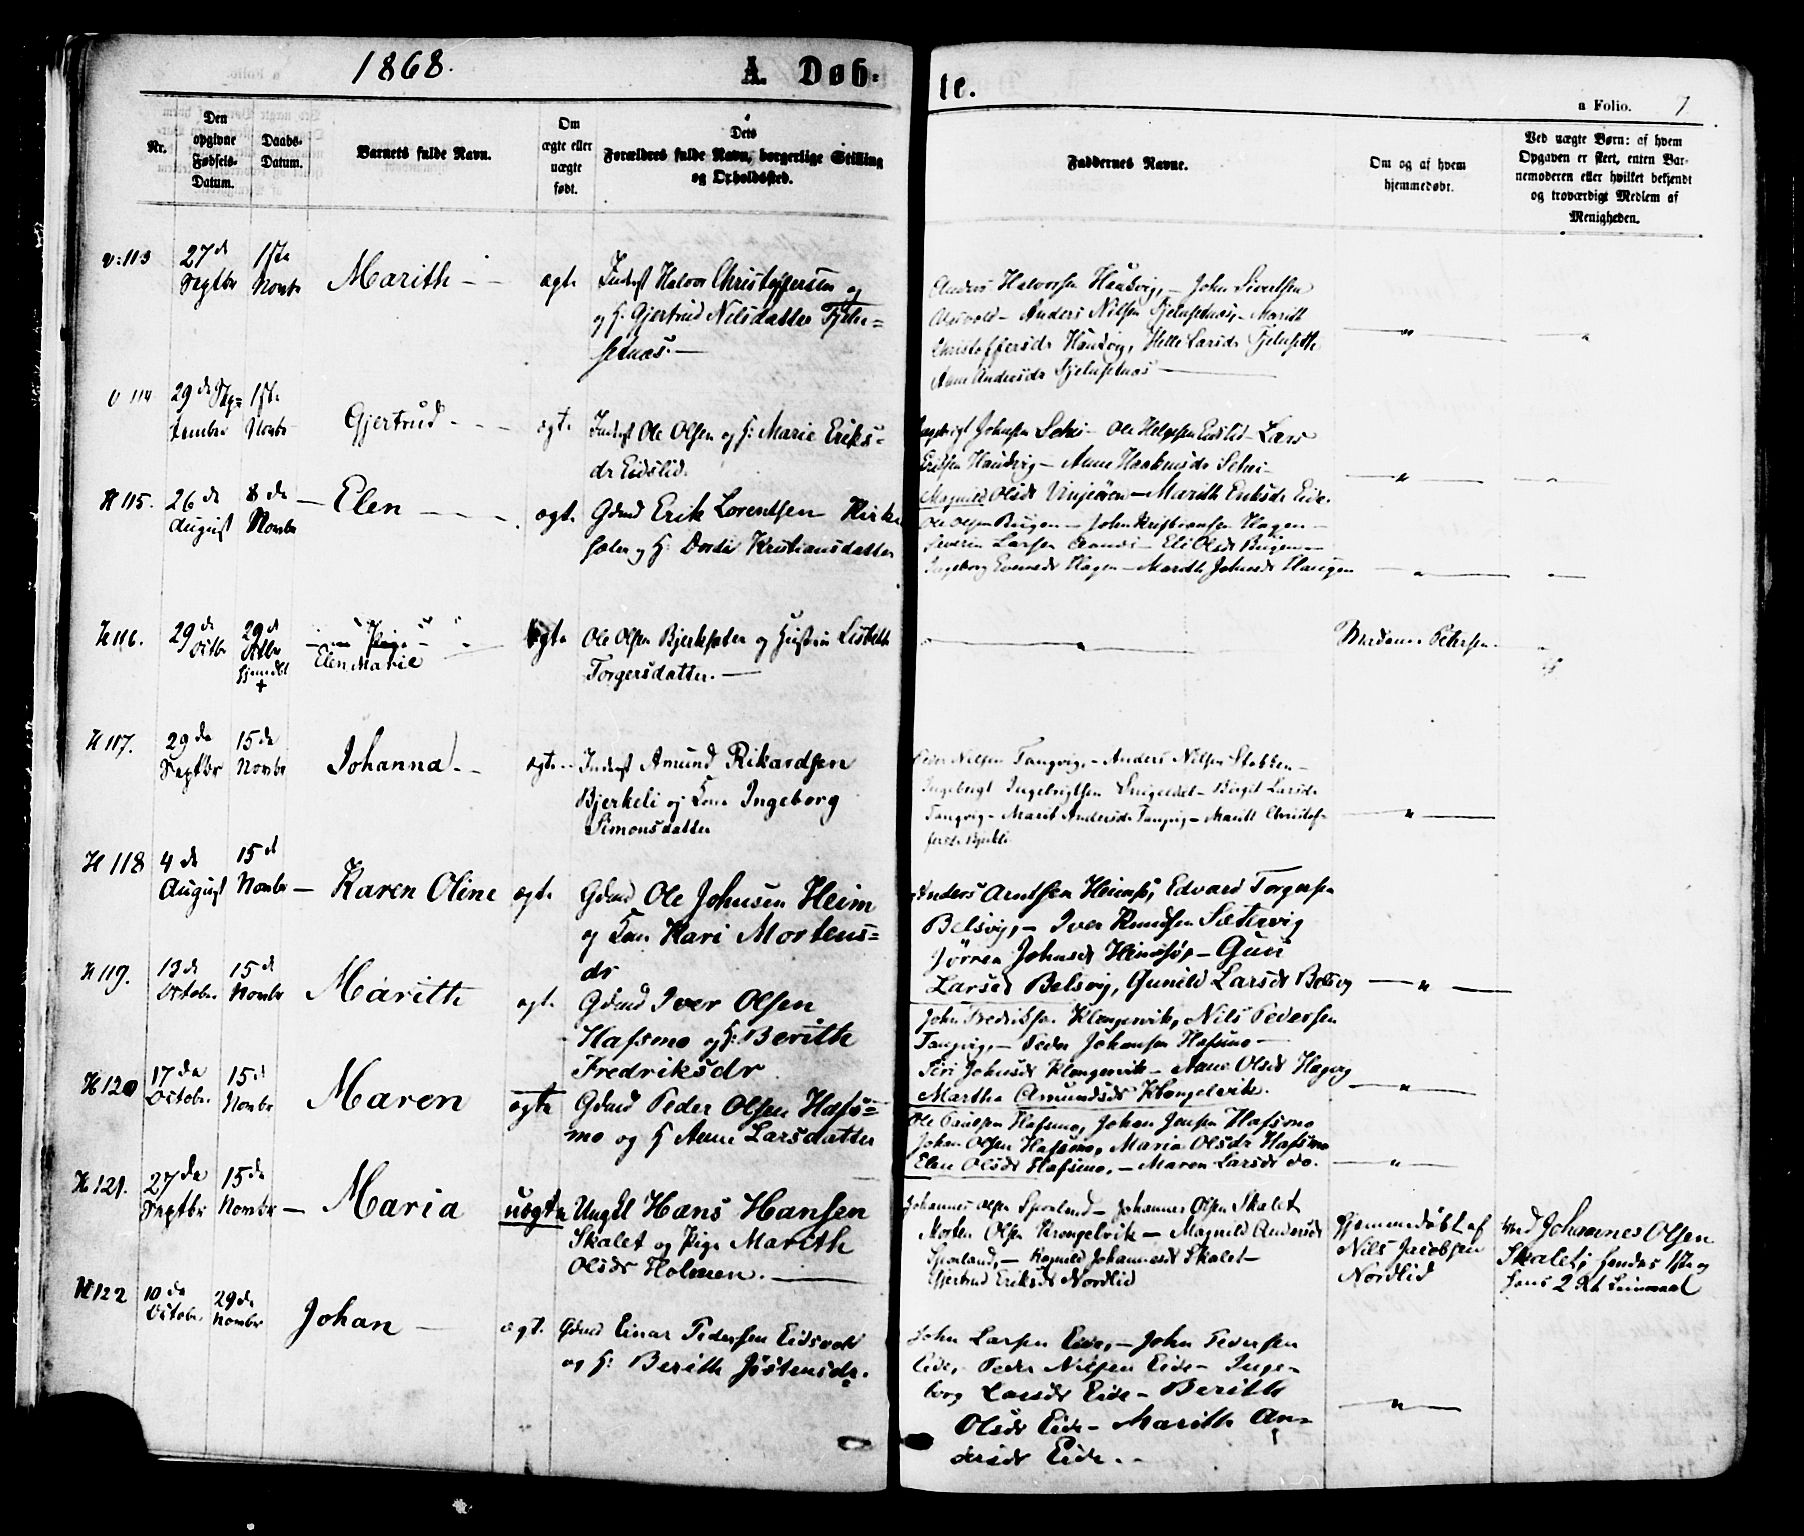 1868.
A. Døb-
te.
a Folio.
7
Nr.
Den
opgivne
Fødsels-
Datum.
Daabs-
Datum.
Barnets fulde Navn.
Om
ægte eller
uægte
født.
Dets
Forældres fulde Navn, borgerlige Stilling
og Opholdssted.
Faddernes Navne.
Om og af hvem
hjemmedøbt.
Ved uægte Børn: af hvem
Opgaven er skeet, enten Bar-
nemoderen eller hvilket bekjendt
og troværdigt Medlem af
Menigheden.
v:113
27de
Septbr
1ste
Novbr
Marith
ægte
Inderst Halvor Christoffersen og
og H: Gjertrud Nilsdatter Fjelu=
setnæs.
Anders Halvorsen Haudvig, – John Sivertsen
Anders Nilsen Fjelusetnæs, – Marith
Christoffersdr Haudvig, Helle Larsdr Fjelusetn
Anne Andersdr Fjelusetnæs
V 114
29de Sep=
tember
1ste
Novbr
Gjertrud
ægte
Inderst Ole Olsen og H: Marie Eriks=
dr Eidslid.
Ingebrigt Johnsen – Ole Helgesen Eidslid – Lars
Eriksen Haudvig – Anne Haakensdr
Magnild Olsdr Vinjeøren – Marith Eriksdr Eide.
H 115.
26de
August
8de
Novbr
Elen
ægt.
Gdmd Erik Lorentsen Kirke
sæter og H: Dordi Kristiansdatter
Ole Olsen Bugen – John Kristiansen Hagen –
Severin Larsen – Eli Olsdr Bugen –
Ingeborg Evensdr Hagen – Marith Johnsdr Haugen
H 116.
29de
Octbr
29de
Octbr
hjemdbt
+
Pige
Elen Marie
ægte
Ole Olsen Bjerksæter og Hustru Lisbeth
Torgersdatter.
Madame Petersen
H 117.
29de
Septbr
15de
Novbr
Johanna
ægte
Inderst Amund Rikardsen
Bjerkeli og Kone Ingeborg
Simonsdatter
Peder Nilsen Tangvig, – Anders Nilsen Stabben –
Ingebrigt Ingebrigtsen – Birgit Larsdr
Tangvig – Marit Andersdr Tangvig – Marith Christof-
fersdr Bjerkli
H 118
4de
August
15de
Novbr
Karen Oline
ægte
Gdmd Ole Johnsen Heim
og Kone Kari Mortens=
dr
Anders Arntsen Heimsø, Edvard Torgersen
Belsvig, – Iver Knudsen Sætervig
Jørren Johnsdr Heimsø, – Guri
Larsdr Belsvig, Gunild Larsdr Belsvig
H 119.
13de
Octobr
15de
Novbr
Marith
ægte
Gdmd Iver Olsen
Hafsmo og H: Berith
Fredriksdr
John Fredriksen Klengervik, Nils Pedersen
Tangvig, – Peder Johansen Hafsmo –
Siri Johnsdr Klengervik – Anne Olsdr
Martha Amundsdr
H 120
17de
Octobr
15de
Novbr
Maren
ægte
Gdmd Peder Olsen Hafs=
mo og H Anne Larsdatter
Ole Paulsen Hafsmo, Johan Jensen Hafsmo
Johan Olsen Hafsmo, Maria Olsdr Hafsmo
Elen Olsdr Hafsmo, – Maren Larsdr do.
H 121.
27de
Septbr
15de
Novbr
Maria
uægte
Ungkl Hans Hansen
Skalet og Pige Marith
Olsdr Holmen.
Johannes Olsen – Johannes Olsen Skalet
Morten Olsen – Magnild Andersdr
– Ragnild Johannesdr Skalet –
Gjertrud Eriksdr Nordlid
Hjemmedøbt af
Nils Jacobsen
Nordlid
ved Johannes Olsen
Skalet;
H 122
10de
Octobr
29de
Novbr
Johan
ægt.
Gdmd Einar Pedersen Eidsvold
og H: Berith Jöstensdr.
John Larsen Eide, – John Pedersen
Eide, – Peder Nilsen Eide – Inge-
borg Larsdr Eide – Berith
Olsdr Eide – Marith An-
dersdr Eide.